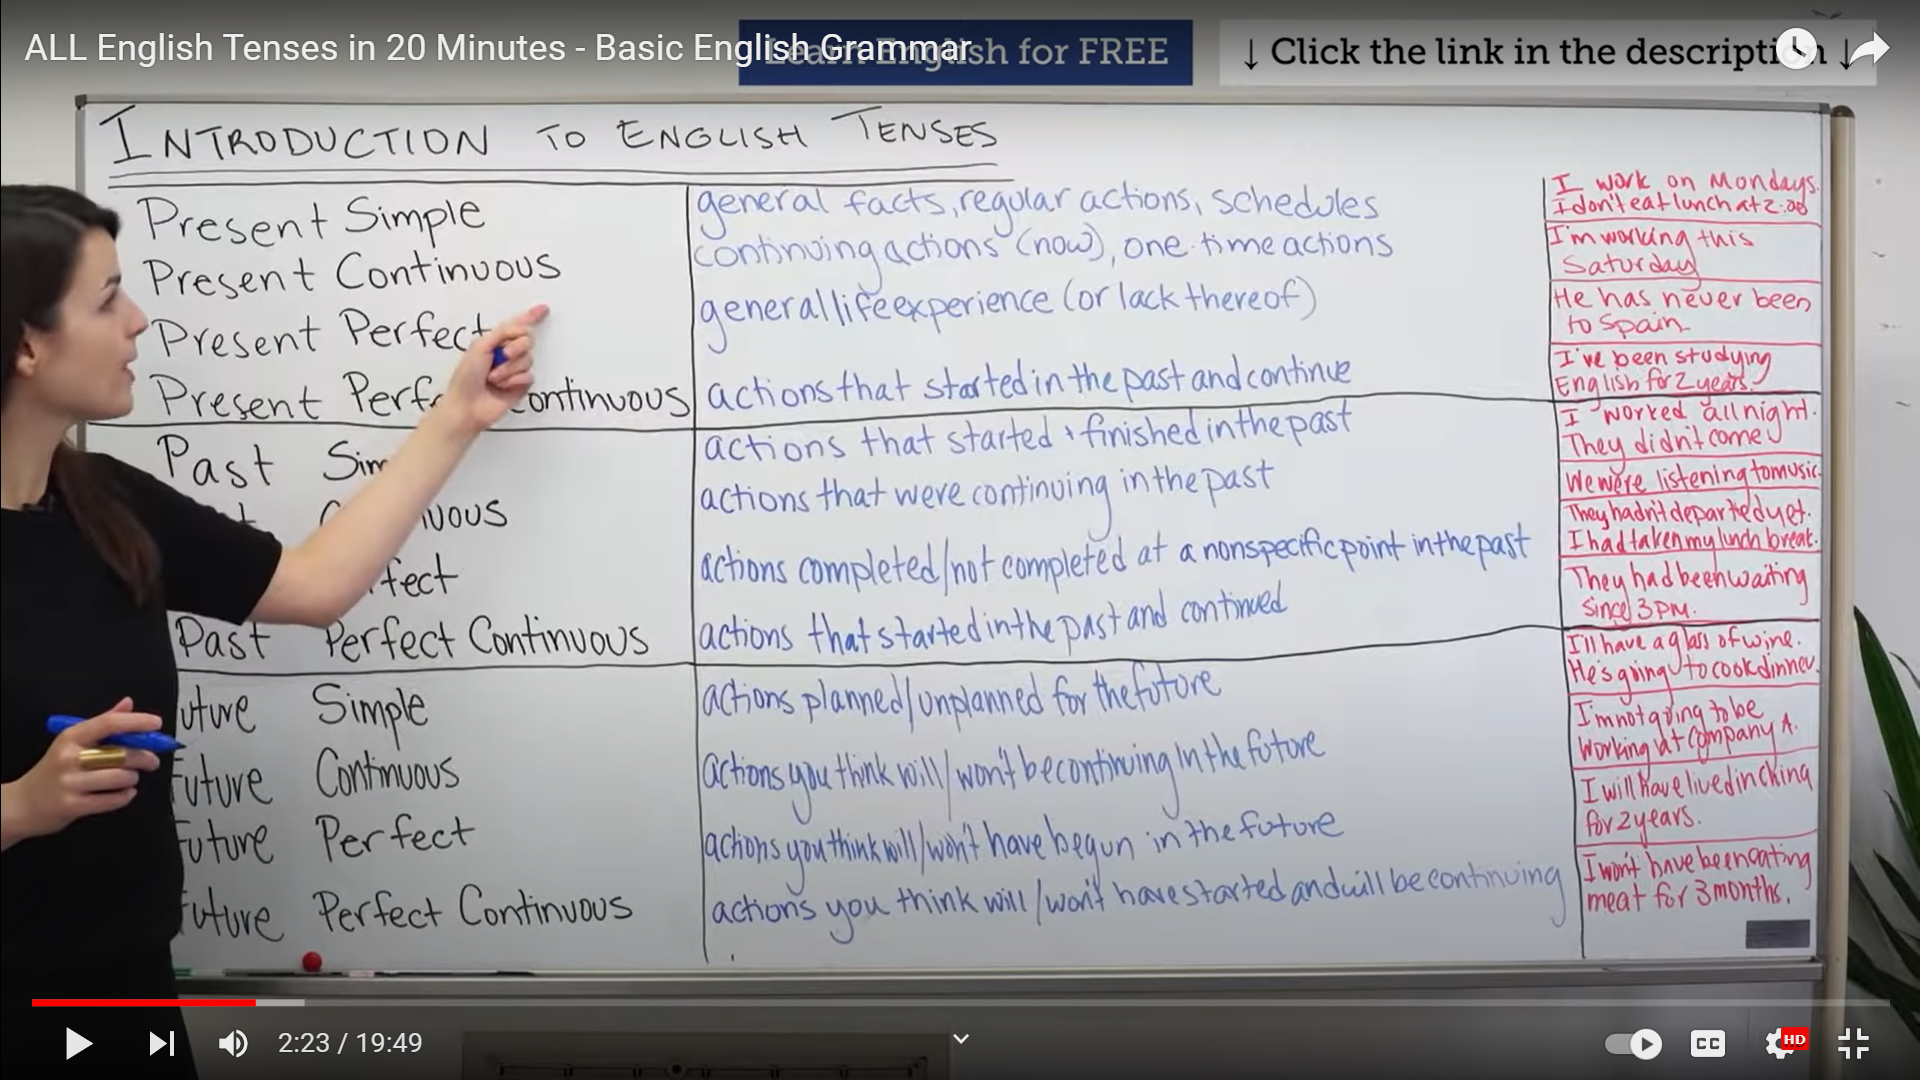 ALL English Tenses in 20 Minutes - Basic English Grammar
Learn English for FREE
↓ Click the link in the description ↓
INTRODUCTION TO ENGLISH TENSES
Present Simple
general facts, regular actions, schedules
I work on Mondays.
I don't eat lunch at 2:00
Present Continuous
continuing actions (now), one-time actions
I'm working this
Saturday
Present Perfect
general life experience (or lack thereof)
He has never been
to Spain.
Present Perfect Continuous
actions that started in the past and continue
I've been studying
English for 2 years.
Past Simple
actions that started + finished in the past
I worked all night.
They didn't come
actions that were continuing in the past
We were listening to music.
actions completed/not completed at a nonspecific point in the past
They hadn't departed yet.
I had taken my lunch break.
Past Perfect Continuous
actions that started in the past and continued
They had been waiting
since 3 PM.
Future Simple
actions planned/unplanned for the future
I'll have a glass of wine.
He's going to cook dinner.
Future Continuous
actions you think will/won't be continuing in the future
I'm not going to be
working at Company A.
Future Perfect
actions you think will/won't have begun in the future
I will have lived in China
for 2 years.
Future Perfect Continuous
actions you think will/won't have started and will be continuing
I won't have been eating
meat for 3 months.
2:23 / 19:49
CC
HD